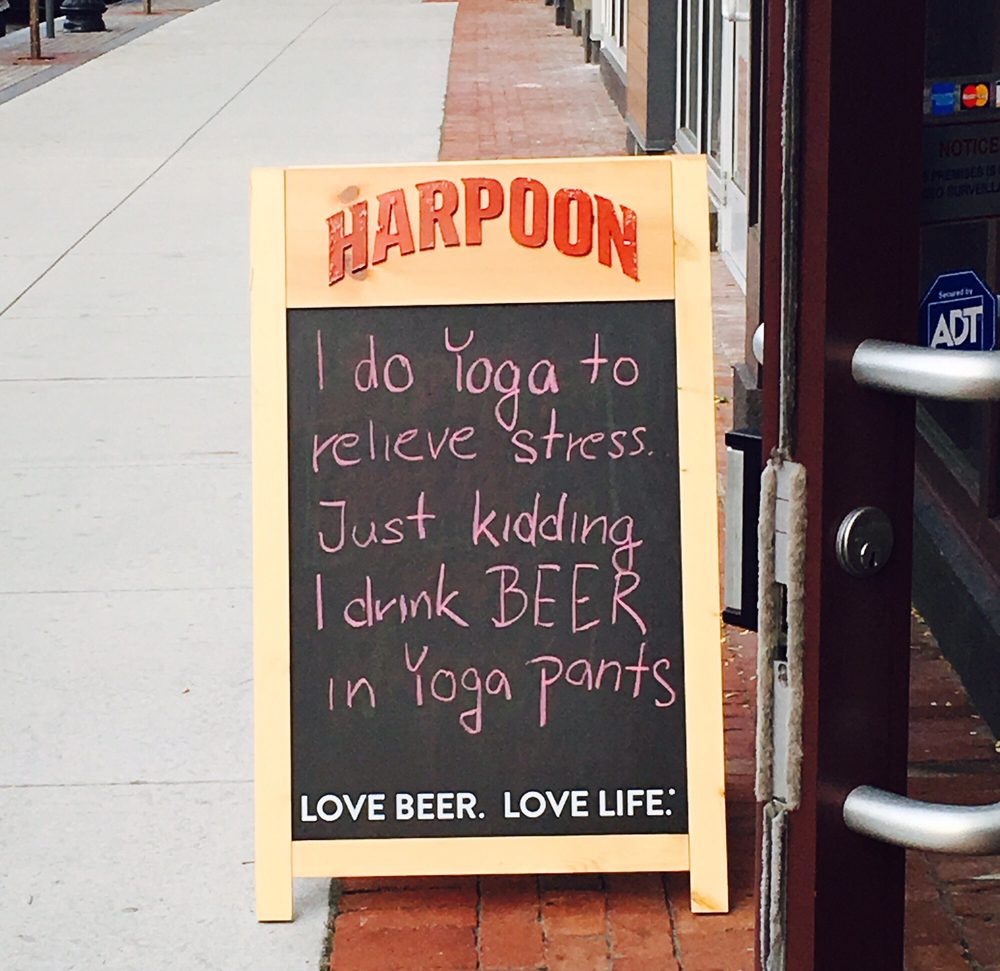 HARPOON
I do Yoga to
relieve stress.
Just kidding
I drink BEER
in Yoga pants
LOVE BEER. LOVE LIFE.
NOTICE
PREMISES
Secured by
ADT